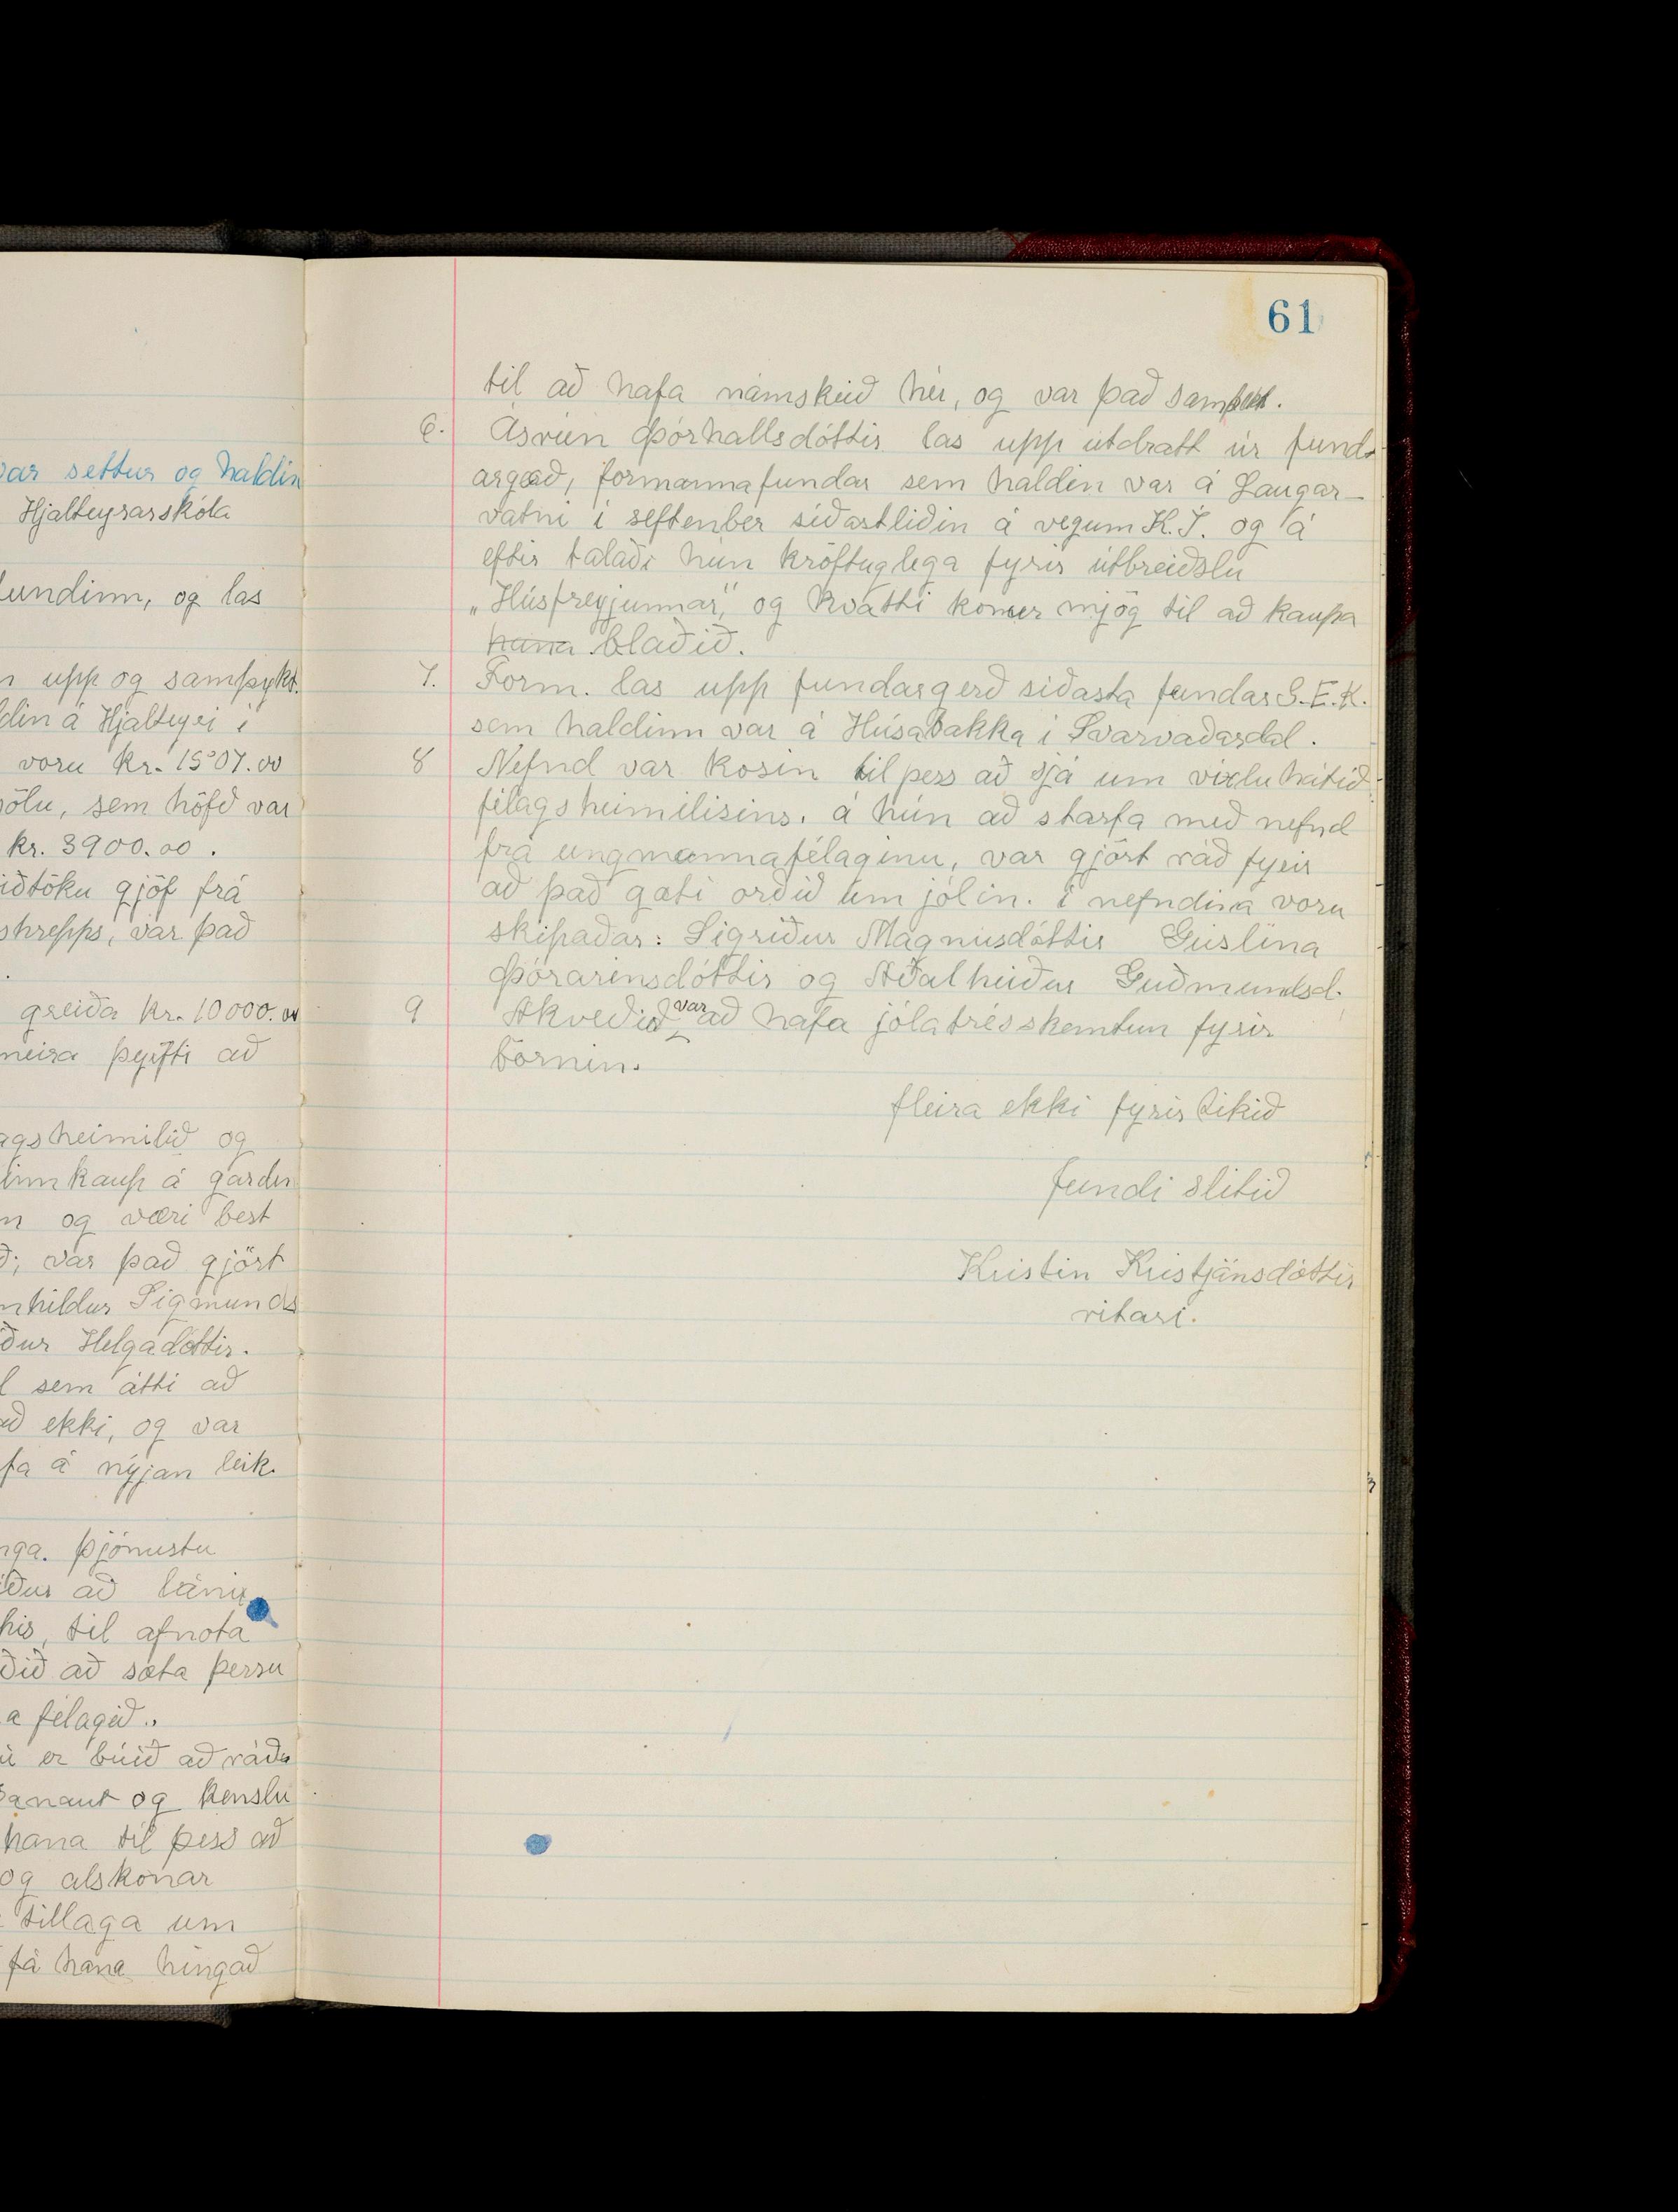 var settur og haldin
Hjalteyrarskóla
fundinn, og las
upp og samþykt.
ldin á Hjalteyri í
voru kr. 1507.00
sölu, sem höfð var
kr. 3900.00.
iðtöku gjöf frá
shrepps, var það
greiða kr. 10000.00
meira þyrfti að
agsheimilið og
innkaup á gardu
n og væri best
ð; var það gjört
nhildur Sigmunds
ður Helgadóttir.
l sem átti að
að ekki, og var
fa á nýjan leik.
nga. þjónustu
ður að láni
his, til afnota
ðið að sæta þessu
a félagið.
ú er búið að ráða
anaut og kenslu
hana til þess að
og alskonar
tillaga um
fá hana hingað
61
til að hafa námskeið hér, og var það samþykt.
6. Ásrún Þórhallsdóttir las upp útdratt úr fund
argæð, formannafundar sem haldin var á Laugar-
vatni í seftenber síðastliðin á vegum K.Í. og á
eftir talaði hún kröftuglega fyrir útbreiðslu
„Húsfreyjunnar," og hvatti konur mjög til að kaupa
hana blaðið.
7. Form. las upp fundargerð síðasta fundar S.E.K.
sem haldinn var á Húsabakka í Svarvaðardal.
8 Nefnd var kosin til þess að sjá um vixluhátíð
félagsheimilisins. á hún að starfa með nefnd
frá ungmannafélaginu, var gjört ráð fyrir
að það gæti orðið um jólin. í nefndina voru
skipaðar: Sigríður Magnúsdóttir Guslína
Þórarinsdóttir og Aðalheiður Guðmundsd.
9 Akveðið var að hafa jólatrésskemtun fyrir
börnin.
fleira ekki fyrir tikið
fundi slitið
Kristín Kristjánsdóttir
ritari.